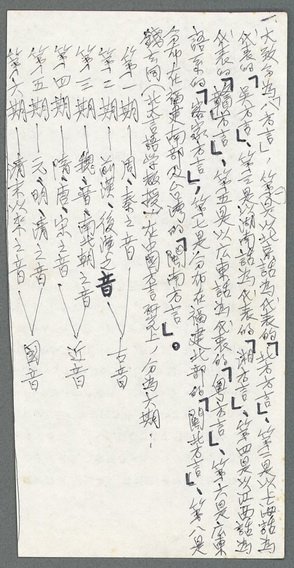 一、大致分為八方言，第一是以北京話為
代表的「北方方言」、第二是以上海話為
代表的「吳方言」、第三是以湖南話為代表的「湘方言」、第四是以江西話為
代表的「贛方言」、第五是以廣東話為代表的「粵方言」、第六是廣東
語系的「客家方言」、第七是分布在福建北部的「閩北方言」、第八是
分布在福建南部及台灣的「閩南方言」。
錢玄同（北京大學教授）在中國方言歷史上，分為六期：
第一期──周、秦之音
第二期──前漢、後漢之音
第三期──魏晉南北朝之音
第四期──隋、唐、宋之音
第五期──元、明、清之音
第六期──清末以來之音
古音
近音
國音